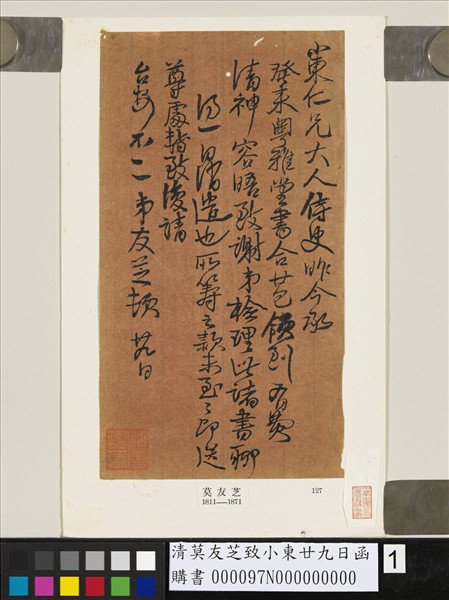 小東仁兄大人侍史昨今承
發來粵雅堂書合廿包領到有費
清神容晤致謝弟檢理此諸書聊
得一消遣也所籌之款未到即送
尊處轉致復請
台安不一弟友芝頓 廿九日
莫友芝
1811—1871
127
清莫友芝致小東廿九日函
購書 000097N000000000
1